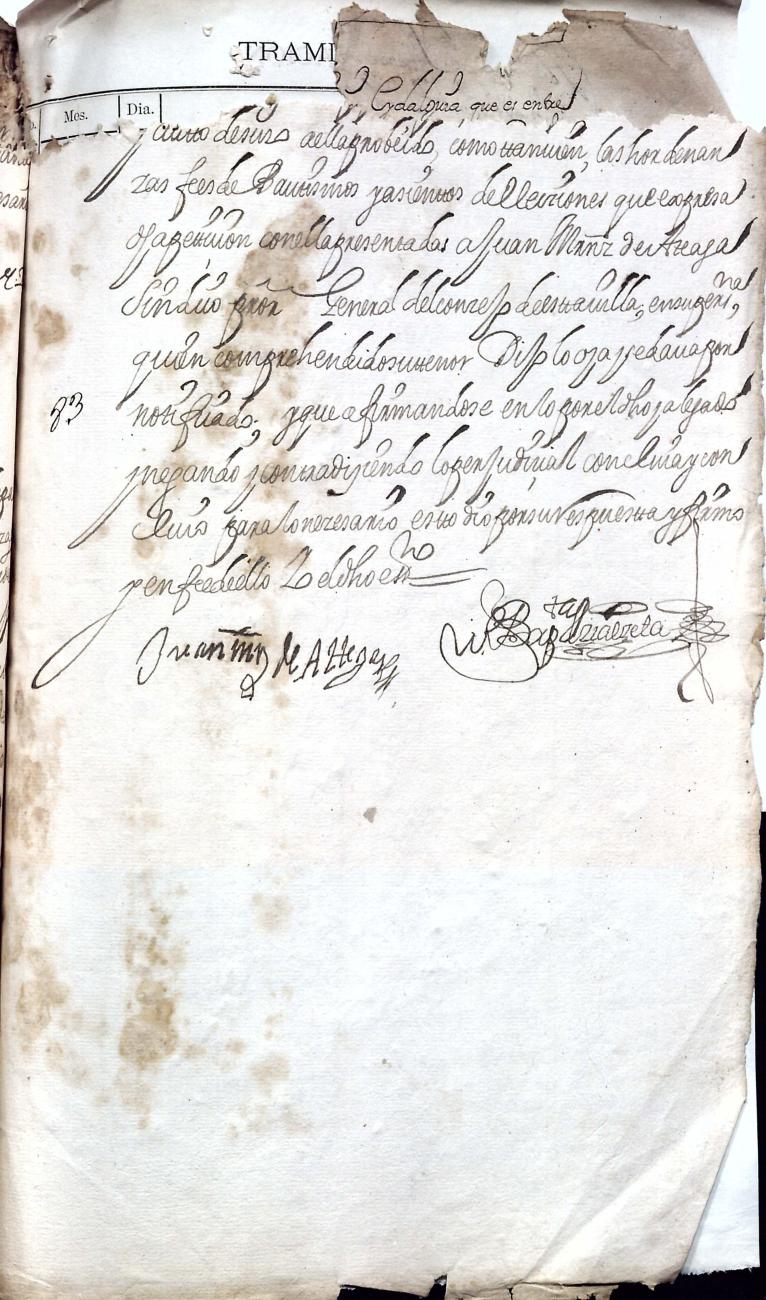 TRAMI
Mes. Dia.
que es entre
y autto desuso aella probeido, como ttanvien, las hordenan
zas fees de Bautismos y asienttos de Elecziones que expresa
petizion con ella presentadas a Juan Mrnz de Atteaga
Sindico pror General del conzejo de estta villa, en su persna,
quien comprehendido su ttenor Dijo lo oya y se dava por
83 nottificado; y que afirmandose en lo por el dho ya alegado
y negando y contradiziendo lo perjudizial concluia y con
cluio para lo nezesario estto dio por su rrespuestta y firmo
y en fee de ello Yo el dho essno
Juan mrnz de Atteaga